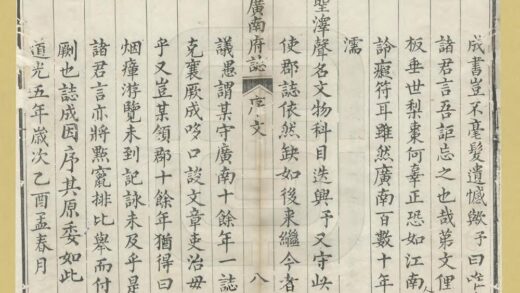 成書豈不毫髮遺憾歟予曰
諸君言吾詎忘之也哉第文俚
板垂世梨棗何辜正恐如江南
詅癡符耳雖然廣南一百數十年
濡
聖澤聲名文物科目迭興予又守此
使郡誌依然缺如後來繼今者
廣南府誌
序文
八
議愚謂某守廣南十餘年一誌
克襄厥成哆口談文章吏治毋
乎又豈某領郡十餘年猶得曰
烟瘴游覽未到記詠未及乎是
諸君言亦將點竄排比舉而付
劂也誌成因序其原委如此
道光五年歲次乙酉孟春月